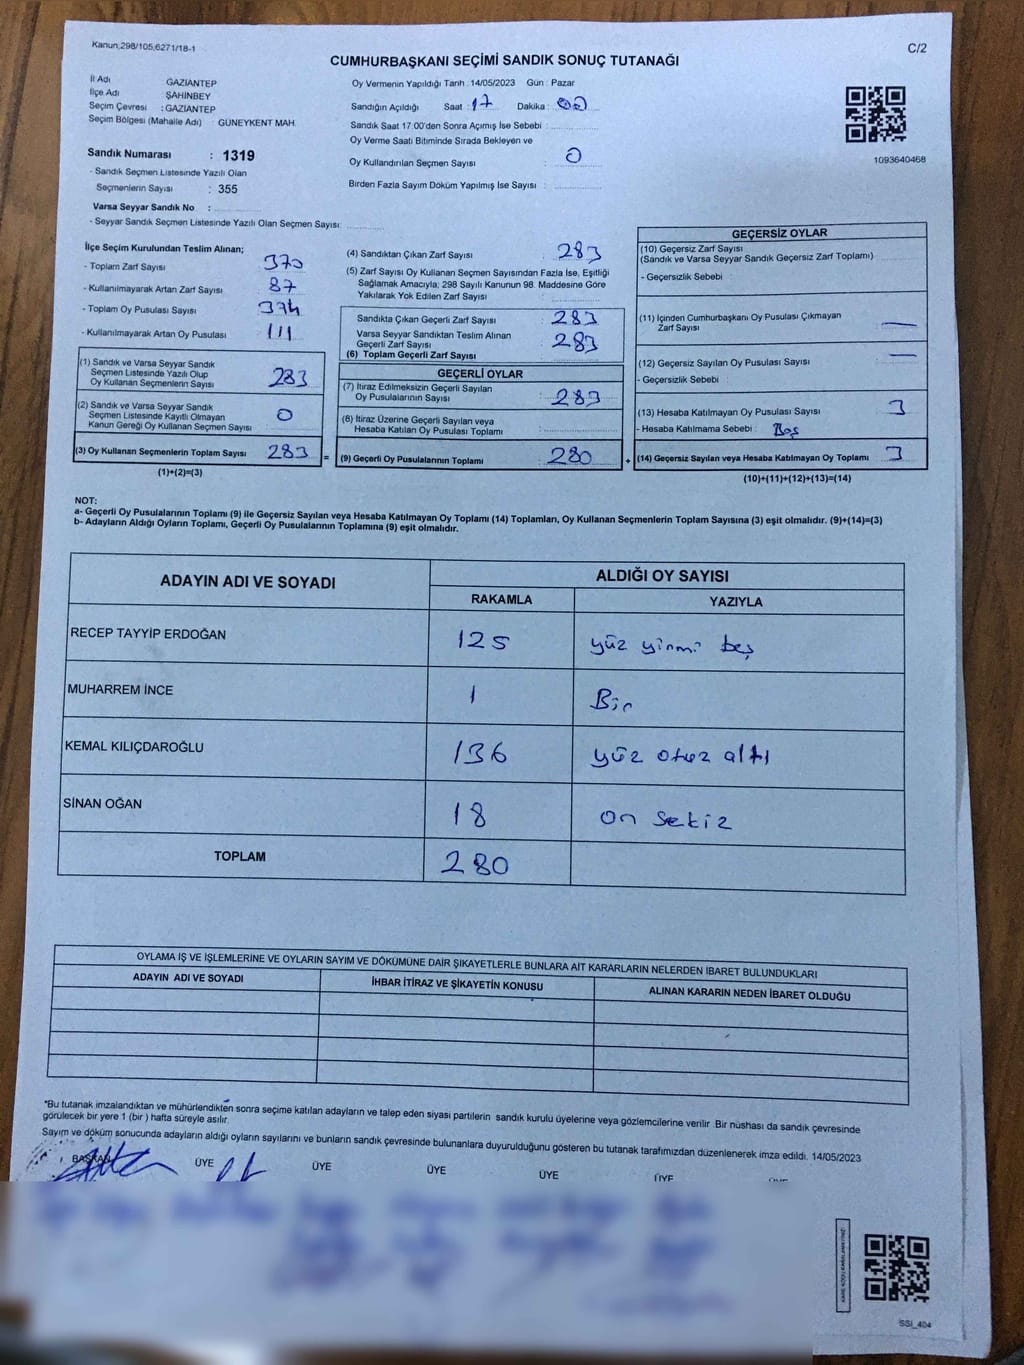 Kanun,298/105,6271/18-1
C/2
CUMHURBAŞKANI SEÇİMİ SANDIK SONUÇ TUTANAĞI
İl Adı GAZİANTEP
İlçe Adı ŞAHİNBEY
Seçim Çevresi : GAZİANTEP
Seçim Bölgesi (Mahalle Adı) : GÜNEYKENT MAH.
Sandık Numarası : 1319
- Sandık Seçmen Listesinde Yazılı Olan
Seçmenlerin Sayısı : 355
Varsa Seyyar Sandık No :
- Seyyar Sandık Seçmen Listesinde Yazılı Olan Seçmen Sayısı:
Oy Vermenin Yapıldığı Tarih : 14/05/2023 Gün : Pazar
Sandığın Açıldığı Saat : 17 Dakika : 00
Sandık Saat 17.00'den Sonra Açımış İse Sebebi :
Oy Verme Saati Bitiminde Sırada Bekleyen ve
Oy Kullandırılan Seçmen Sayısı : 0
Birden Fazla Sayım Döküm Yapılmış İse Sayısı :
1093640468
İlçe Seçim Kurulundan Teslim Alınan;
- Toplam Zarf Sayısı : 370
- Kullanılmayarak Artan Zarf Sayısı : 87
- Toplam Oy Pusulası Sayısı : 374
- Kullanılmayarak Artan Oy Pusulası : 111
(1) Sandık ve Varsa Seyyar Sandık
Seçmen Listesinde Yazılı Olup
Oy Kullanan Seçmenlerin Sayısı : 283
(2) Sandık ve Varsa Seyyar Sandık
Seçmen Listesinde Kayıtlı Olmayan
Kanun Gereği Oy Kullanan Seçmen Sayısı : 0
(3) Oy Kullanan Seçmenlerin Toplam Sayısı : 283 =
(1)+(2)=(3)
(4) Sandıktan Çıkan Zarf Sayısı : 283
(5) Zarf Sayısı Oy Kullanan Seçmen Sayısından Fazla İse, Eşitliği
Sağlamak Amacıyla; 298 Sayılı Kanunun 98. Maddesine Göre
Yakılarak Yok Edilen Zarf Sayısı :
Sandıkta Çıkan Geçerli Zarf Sayısı : 283
Varsa Seyyar Sandıktan Teslim Alınan
Geçerli Zarf Sayısı : 283
(6) Toplam Geçerli Zarf Sayısı
GEÇERLİ OYLAR
(7) İtiraz Edilmeksizin Geçerli Sayılan
Oy Pusulalarının Sayısı : 283
(8) İtiraz Üzerine Geçerli Sayılan veya
Hesaba Katılan Oy Pusulası Toplamı :
(9) Geçerli Oy Pusulalarının Toplamı : 280 +
GEÇERSİZ OYLAR
(10) Geçersiz Zarf Sayısı
(Sandık ve Varsa Seyyar Sandık Geçersiz Zarf Toplamı)
- Geçersizlik Sebebi :
(11) İçinden Cumhurbaşkanı Oy Pusulası Çıkmayan
Zarf Sayısı : —
(12) Geçersiz Sayılan Oy Pusulası Sayısı : —
- Geçersizlik Sebebi :
(13) Hesaba Katılmayan Oy Pusulası Sayısı : 3
- Hesaba Katılmama Sebebi : Boş
(14) Geçersiz Sayılan veya Hesaba Katılmayan Oy Toplamı : 3
(10)+(11)+(12)+(13)=(14)
NOT:
a- Geçerli Oy Pusulalarının Toplamı (9) ile Geçersiz Sayılan veya Hesaba Katılmayan Oy Toplamı (14) Toplamları, Oy Kullanan Seçmenlerin Toplam Sayısına (3) eşit olmalıdır. (9)+(14)=(3)
b- Adayların Aldığı Oyların Toplamı, Geçerli Oy Pusulalarının Toplamına (9) eşit olmalıdır.
ADAYIN ADI VE SOYADI ALDIĞI OY SAYISI
RAKAMLA YAZIYLA
RECEP TAYYİP ERDOĞAN 125 yüz yirmi beş
MUHARREM İNCE 1 Bir
KEMAL KILIÇDAROĞLU 136 yüz otuz altı
SİNAN OĞAN 18 on sekiz
TOPLAM 280
OYLAMA İŞ VE İŞLEMLERİNE VE OYLARIN SAYIM VE DÖKÜMÜNE DAİR ŞİKAYETLERLE BUNLARA AİT KARARLARIN NELERDEN İBARET BULUNDUKLARI
ADAYIN ADI VE SOYADI İHBAR İTİRAZ VE ŞİKAYETİN KONUSU ALINAN KARARIN NEDEN İBARET OLDUĞU
*Bu tutanak imzalandıktan ve mühürlendikten sonra seçime katılan adayların ve talep eden siyasi partilerin sandık kurulu üyelerine veya gözlemcilerine verilir. Bir nüshası da sandık çevresinde
görülecek bir yere 1 (bir ) hafta süreyle asılır.
Sayım ve döküm sonucunda adayların aldığı oyların sayılarını ve bunların sandık çevresinde bulunanlara duyurulduğunu gösteren bu tutanak tarafımızdan düzenlenerek imza edildi. 14/05/2023
BAŞKAN ÜYE ÜYE ÜYE ÜYE ÜYE
SSI_404